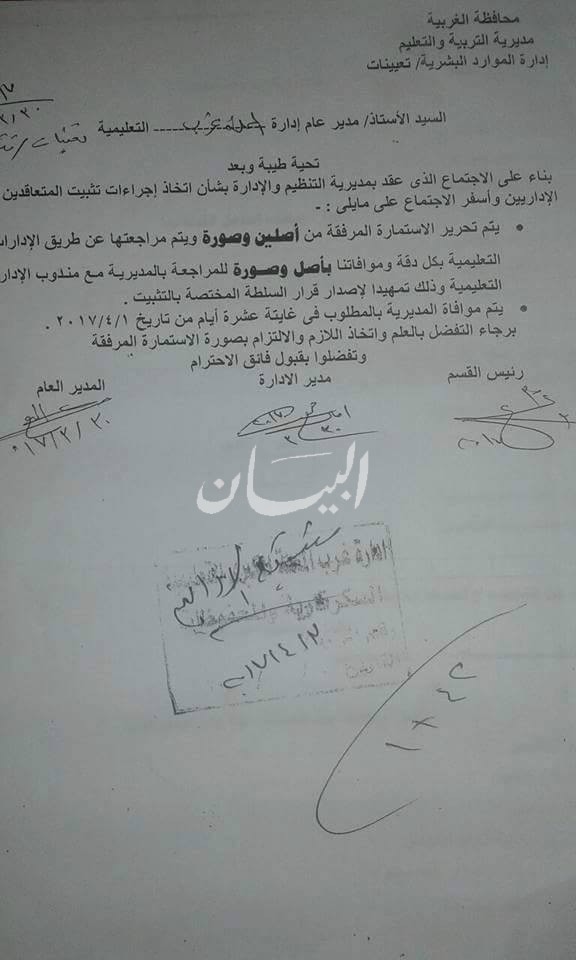 محافظة الغربية
مديرية التربية والتعليم
إدارة الموارد البشرية/ تعيينات
السيد الأستاذ/ مدير عام إدارة غرب المحلة التعليمية
تحية طيبة وبعد
بناء على الاجتماع الذى عقد بمديرية التنظيم والإدارة بشأن اتخاذ إجراءات تثبيت المتعاقدين
الإداريين وأسفر الاجتماع على مايلى : -
• يتم تحرير الاستمارة المرفقة من أصلين وصورة ويتم مراجعتها عن طريق الإدارات
التعليمية بكل دقة وموافاتنا بأصل وصورة للمراجعة بالمديرية مع مندوب الإدارة
التعليمية وذلك تمهيدا لإصدار قرار السلطة المختصة بالتثبيت .
• يتم موافاة المديرية بالمطلوب فى غايتة عشرة أيام من تاريخ ٢٠١٧/٤/١ .
برجاء التفضل بالعلم واتخاذ اللازم والالتزام بصورة الاستمارة المرفقة
وتفضلوا بقبول فائق الاحترام
رئيس القسم
مدير الادارة
المدير العام
٢٠١٧/٣/٣٠
البيان
ادارة غرب المحلة
السكرتارية
٢٠١٧/٤/٣
١ × ٤٢